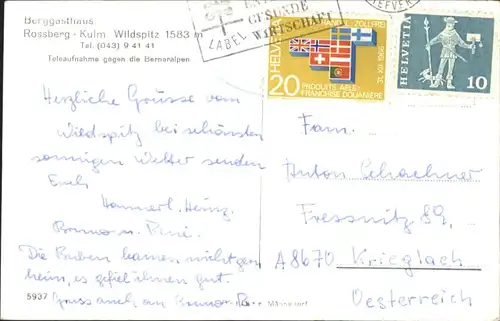 Berggasthaus
Rossberg - Kulm Wildspitz 1583 m
Tel. (043) 9 41 41
Teleaufnahme gegen die Berneralpen
GESUNDE
LABEL WIRTSCHAFT
HELVETIA
ZOLLFREI
31.XII.1966
20
PRODUITS AELE:
FRANCHISE DOUANIERE
HELVETIA
10
Herzliche Grüsse vom
Wildspitz bei schönstem
sonnigen Wetter senden
Euch
Hannerl, Heinz,
Bruno u.
Die Buben kamen nicht gern
heim, es gefiel ihnen gut.
Gruss auch an
Fam.
Anton Schachner
Fressnitz 89,
A8670 Krieglach
Oesterreich
5937
Männedorf